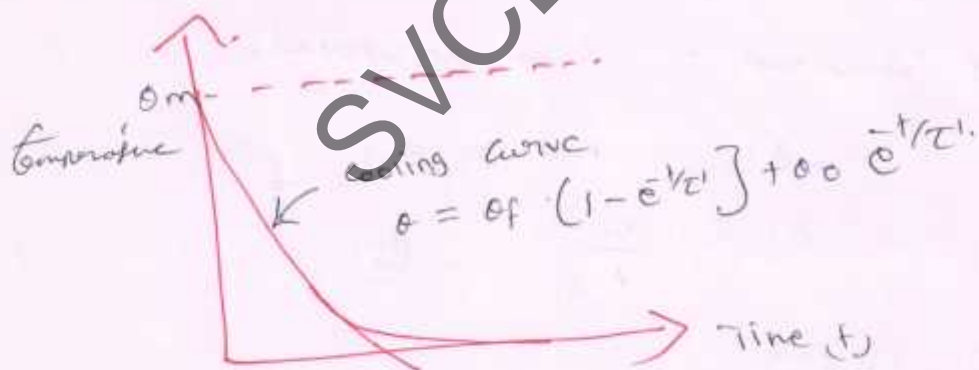 SVCE
θm
Temperature
cooling curve.
θ = θf (1 - e^-t/τ'] + θo e^-t/τ'.
Time (t)